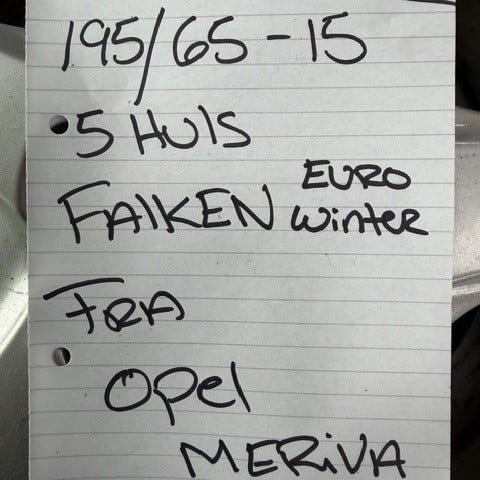 195/65-15
5 HULS
FALKEN EURO Winter
FRA
Opel
MERiVA